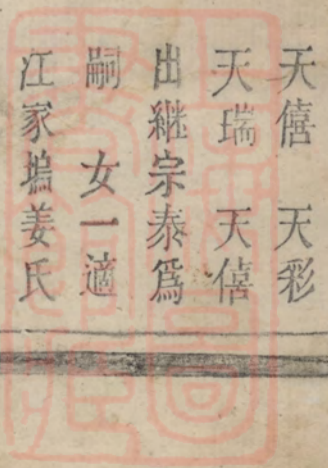 天僖 天彩
天瑞 天僖
出繼宗泰爲
嗣 女一適
江家塢姜氏